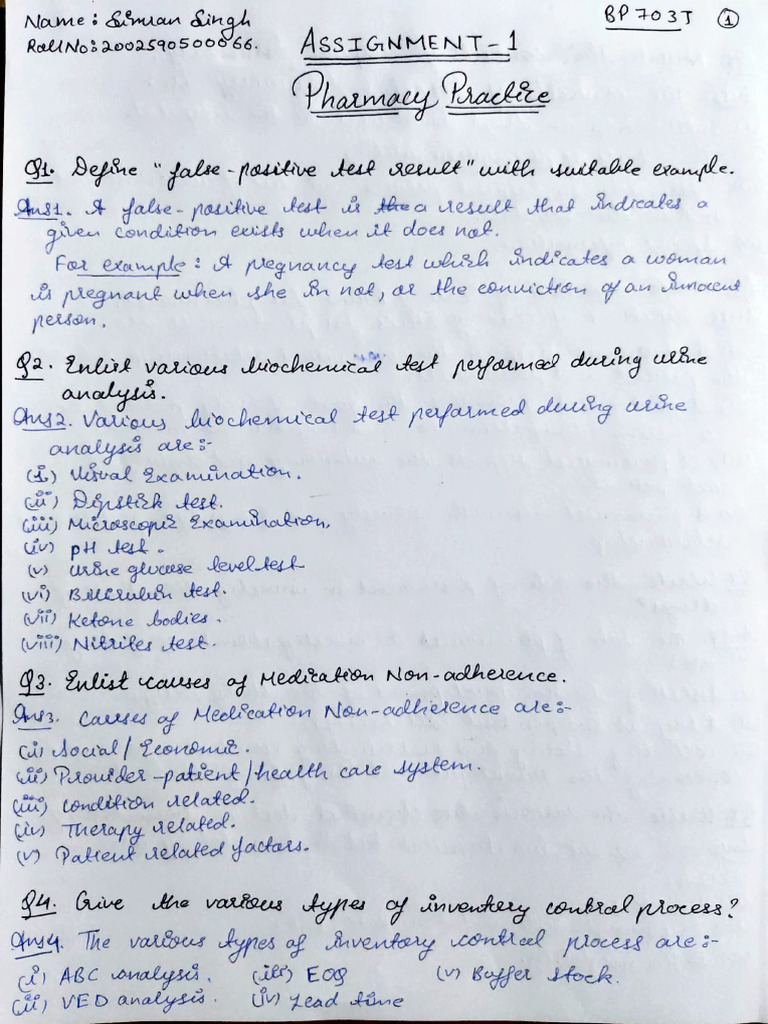 Name: Simran Singh
BP703T 1
Roll No: 2002590500066.
ASSIGNMENT-1
Pharmacy Practice
Q1. Define "false-positive test result" with suitable example.
Ans1. A false-positive test is the a result that indicates a
given condition exists when it does not.
For example: A pregnancy test which indicates a woman
is pregnant when she in not, or the conviction of an innocent
person.
Q2. Enlist various biochemical test performed during urine
analysis.
Ans2. Various biochemical test performed during urine
analysis are:-
(i) Visual Examination.
(ii) Dipstick test.
(iii) Microscopic Examination.
(iv) pH test.
(v) Urine glucose level test
(vi) Bilirubin test.
(vii) Ketone bodies.
(viii) Nitrites test.
Q3. Enlist causes of Medication Non-adherence.
Ans3. Causes of Medication Non-adherence are:-
(i) Social/Economic.
(ii) Provider-patient/health care system.
(iii) Condition related.
(iv) Therapy related.
(v) Patient related factors.
Q4. Give the various types of inventory control process?
Ans4. The various types of inventory control process are:-
(i) ABC analysis. (iii) EOQ (v) Buffer stock.
(ii) VED analysis. (iv) Lead time